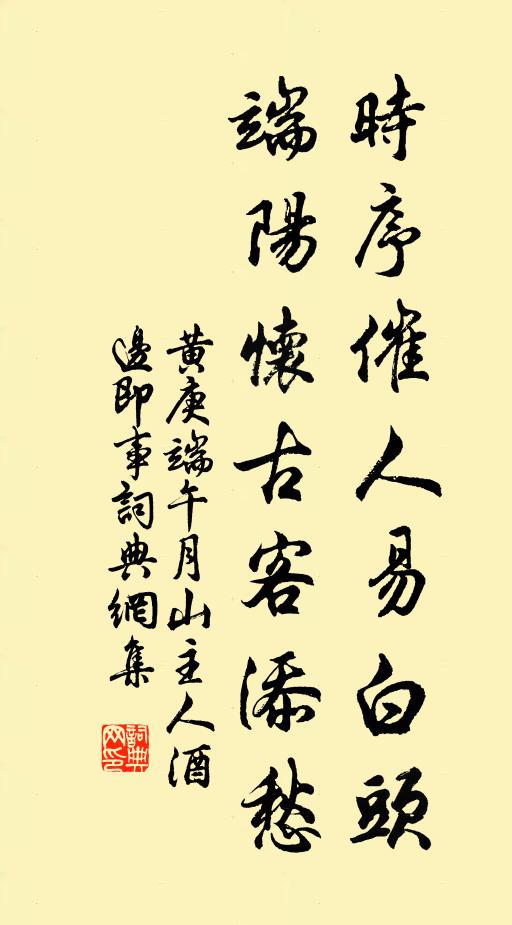 時序催人易白頭
端陽懷古客添愁
黃庚端午月山主人酒
邊即事詞典網集
詞典
网印